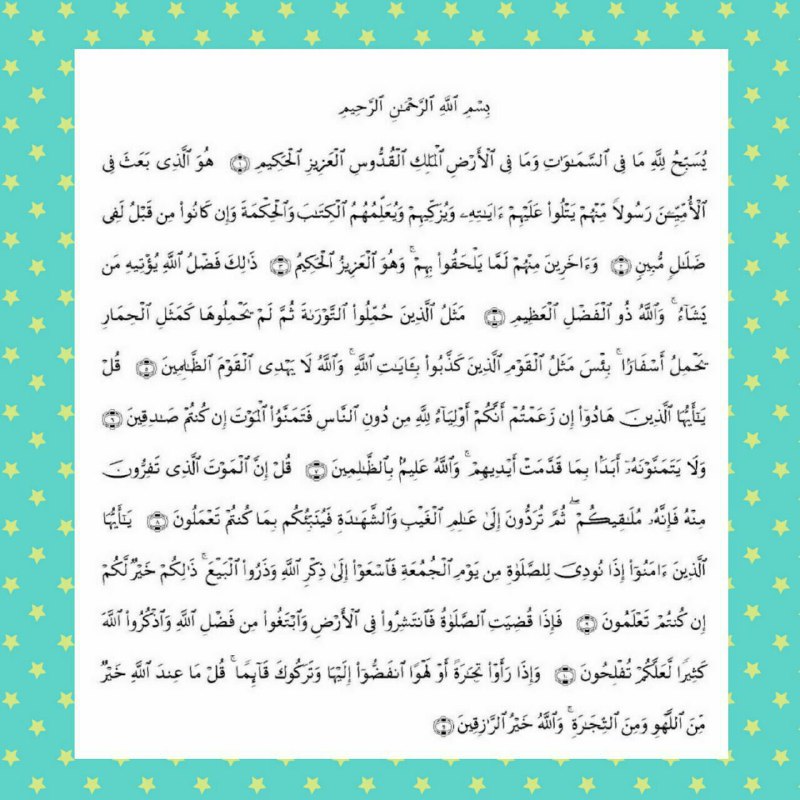 بِسْمِ ٱللَّهِ ٱلرَّحْمَـٰنِ ٱلرَّحِيمِ
يُسَبِّحُ لِلَّهِ مَا فِى ٱلسَّمَـٰوَٰتِ وَمَا فِى ٱلْأَرْضِ ٱلْمَلِكِ ٱلْقُدُّوسِ ٱلْعَزِيزِ ٱلْحَكِيمِ ۝١ هُوَ ٱلَّذِى بَعَثَ فِى
ٱلْأُمِّيِّـۧنَ رَسُولًا مِّنْهُمْ يَتْلُوا۟ عَلَيْهِمْ ءَايَـٰتِهِۦ وَيُزَكِّيهِمْ وَيُعَلِّمُهُمُ ٱلْكِتَـٰبَ وَٱلْحِكْمَةَ وَإِن كَانُوا۟ مِن قَبْلُ لَفِى
ضَلَـٰلٍ مُّبِينٍ ۝٢ وَءَاخَرِينَ مِنْهُمْ لَمَّا يَلْحَقُوا۟ بِهِمْ ۚ وَهُوَ ٱلْعَزِيزُ ٱلْحَكِيمُ ۝٣ ذَٰلِكَ فَضْلُ ٱللَّهِ يُؤْتِيهِ مَن
يَشَآءُ ۚ وَٱللَّهُ ذُو ٱلْفَضْلِ ٱلْعَظِيمِ ۝٤ مَثَلُ ٱلَّذِينَ حُمِّلُوا۟ ٱلتَّوْرَىٰةَ ثُمَّ لَمْ يَحْمِلُوهَا كَمَثَلِ ٱلْحِمَارِ
يَحْمِلُ أَسْفَارًۢا ۚ بِئْسَ مَثَلُ ٱلْقَوْمِ ٱلَّذِينَ كَذَّبُوا۟ بِـَٔايَـٰتِ ٱللَّهِ ۚ وَٱللَّهُ لَا يَهْدِى ٱلْقَوْمَ ٱلظَّـٰلِمِينَ ۝٥ قُلْ
يَـٰٓأَيُّهَا ٱلَّذِينَ هَادُوٓا۟ إِن زَعَمْتُمْ أَنَّكُمْ أَوْلِيَآءُ لِلَّهِ مِن دُونِ ٱلنَّاسِ فَتَمَنَّوُا۟ ٱلْمَوْتَ إِن كُنتُمْ صَـٰدِقِينَ ۝٦
وَلَا يَتَمَنَّوْنَهُۥٓ أَبَدًۢا بِمَا قَدَّمَتْ أَيْدِيهِمْ ۚ وَٱللَّهُ عَلِيمٌۢ بِٱلظَّـٰلِمِينَ ۝٧ قُلْ إِنَّ ٱلْمَوْتَ ٱلَّذِى تَفِرُّونَ
مِنْهُ فَإِنَّهُۥ مُلَـٰقِيكُمْ ۖ ثُمَّ تُرَدُّونَ إِلَىٰ عَـٰلِمِ ٱلْغَيْبِ وَٱلشَّهَـٰدَةِ فَيُنَبِّئُكُم بِمَا كُنتُمْ تَعْمَلُونَ ۝٨ يَـٰٓأَيُّهَا
ٱلَّذِينَ ءَامَنُوٓا۟ إِذَا نُودِىَ لِلصَّلَوٰةِ مِن يَوْمِ ٱلْجُمُعَةِ فَٱسْعَوْا۟ إِلَىٰ ذِكْرِ ٱللَّهِ وَذَرُوا۟ ٱلْبَيْعَ ۚ ذَٰلِكُمْ خَيْرٌ لَّكُمْ
إِن كُنتُمْ تَعْلَمُونَ ۝٩ فَإِذَا قُضِيَتِ ٱلصَّلَوٰةُ فَٱنتَشِرُوا۟ فِى ٱلْأَرْضِ وَٱبْتَغُوا۟ مِن فَضْلِ ٱللَّهِ وَٱذْكُرُوا۟ ٱللَّهَ
كَثِيرًا لَّعَلَّكُمْ تُفْلِحُونَ ۝١٠ وَإِذَا رَأَوْا۟ تِجَـٰرَةً أَوْ لَهْوًا ٱنفَضُّوٓا۟ إِلَيْهَا وَتَرَكُوكَ قَآئِمًا ۚ قُلْ مَا عِندَ ٱللَّهِ خَيْرٌ
مِّنَ ٱللَّهْوِ وَمِنَ ٱلتِّجَـٰرَةِ ۚ وَٱللَّهُ خَيْرُ ٱلرَّٰزِقِينَ ۝